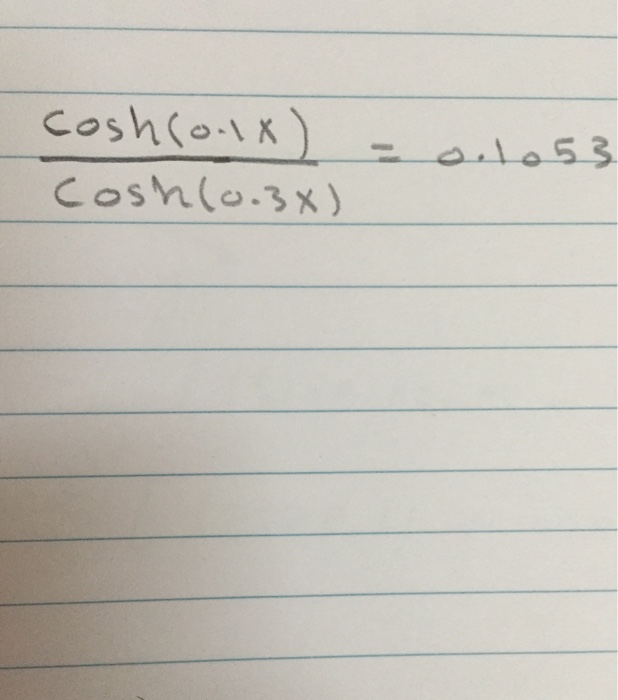 cosh(0.1x)
= 0.1053
cosh(0.3x)